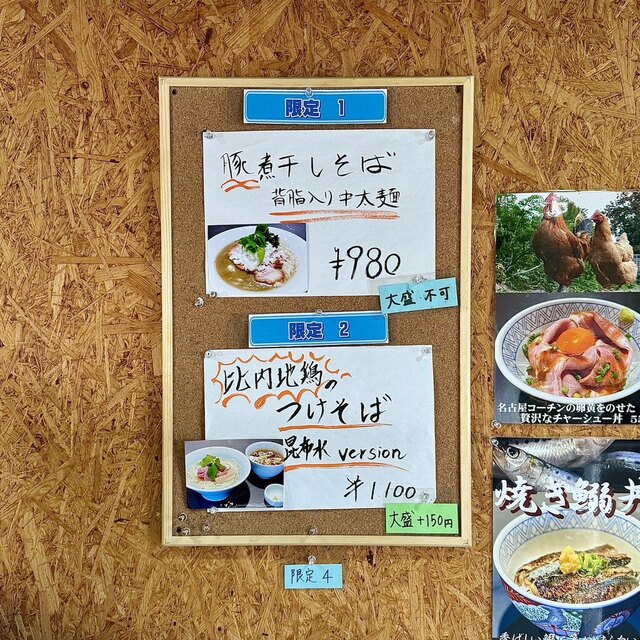 限定 1
豚煮干しそば
背脂入り中太麺
¥980
大盛 不可
限定 2
比内地鶏の
つけそば
昆布水 version
¥1,100
大盛 +150円
限定 4
名古屋コーチンの卵黄をのせた
贅沢なチャーシュー丼
焼き鰯丼